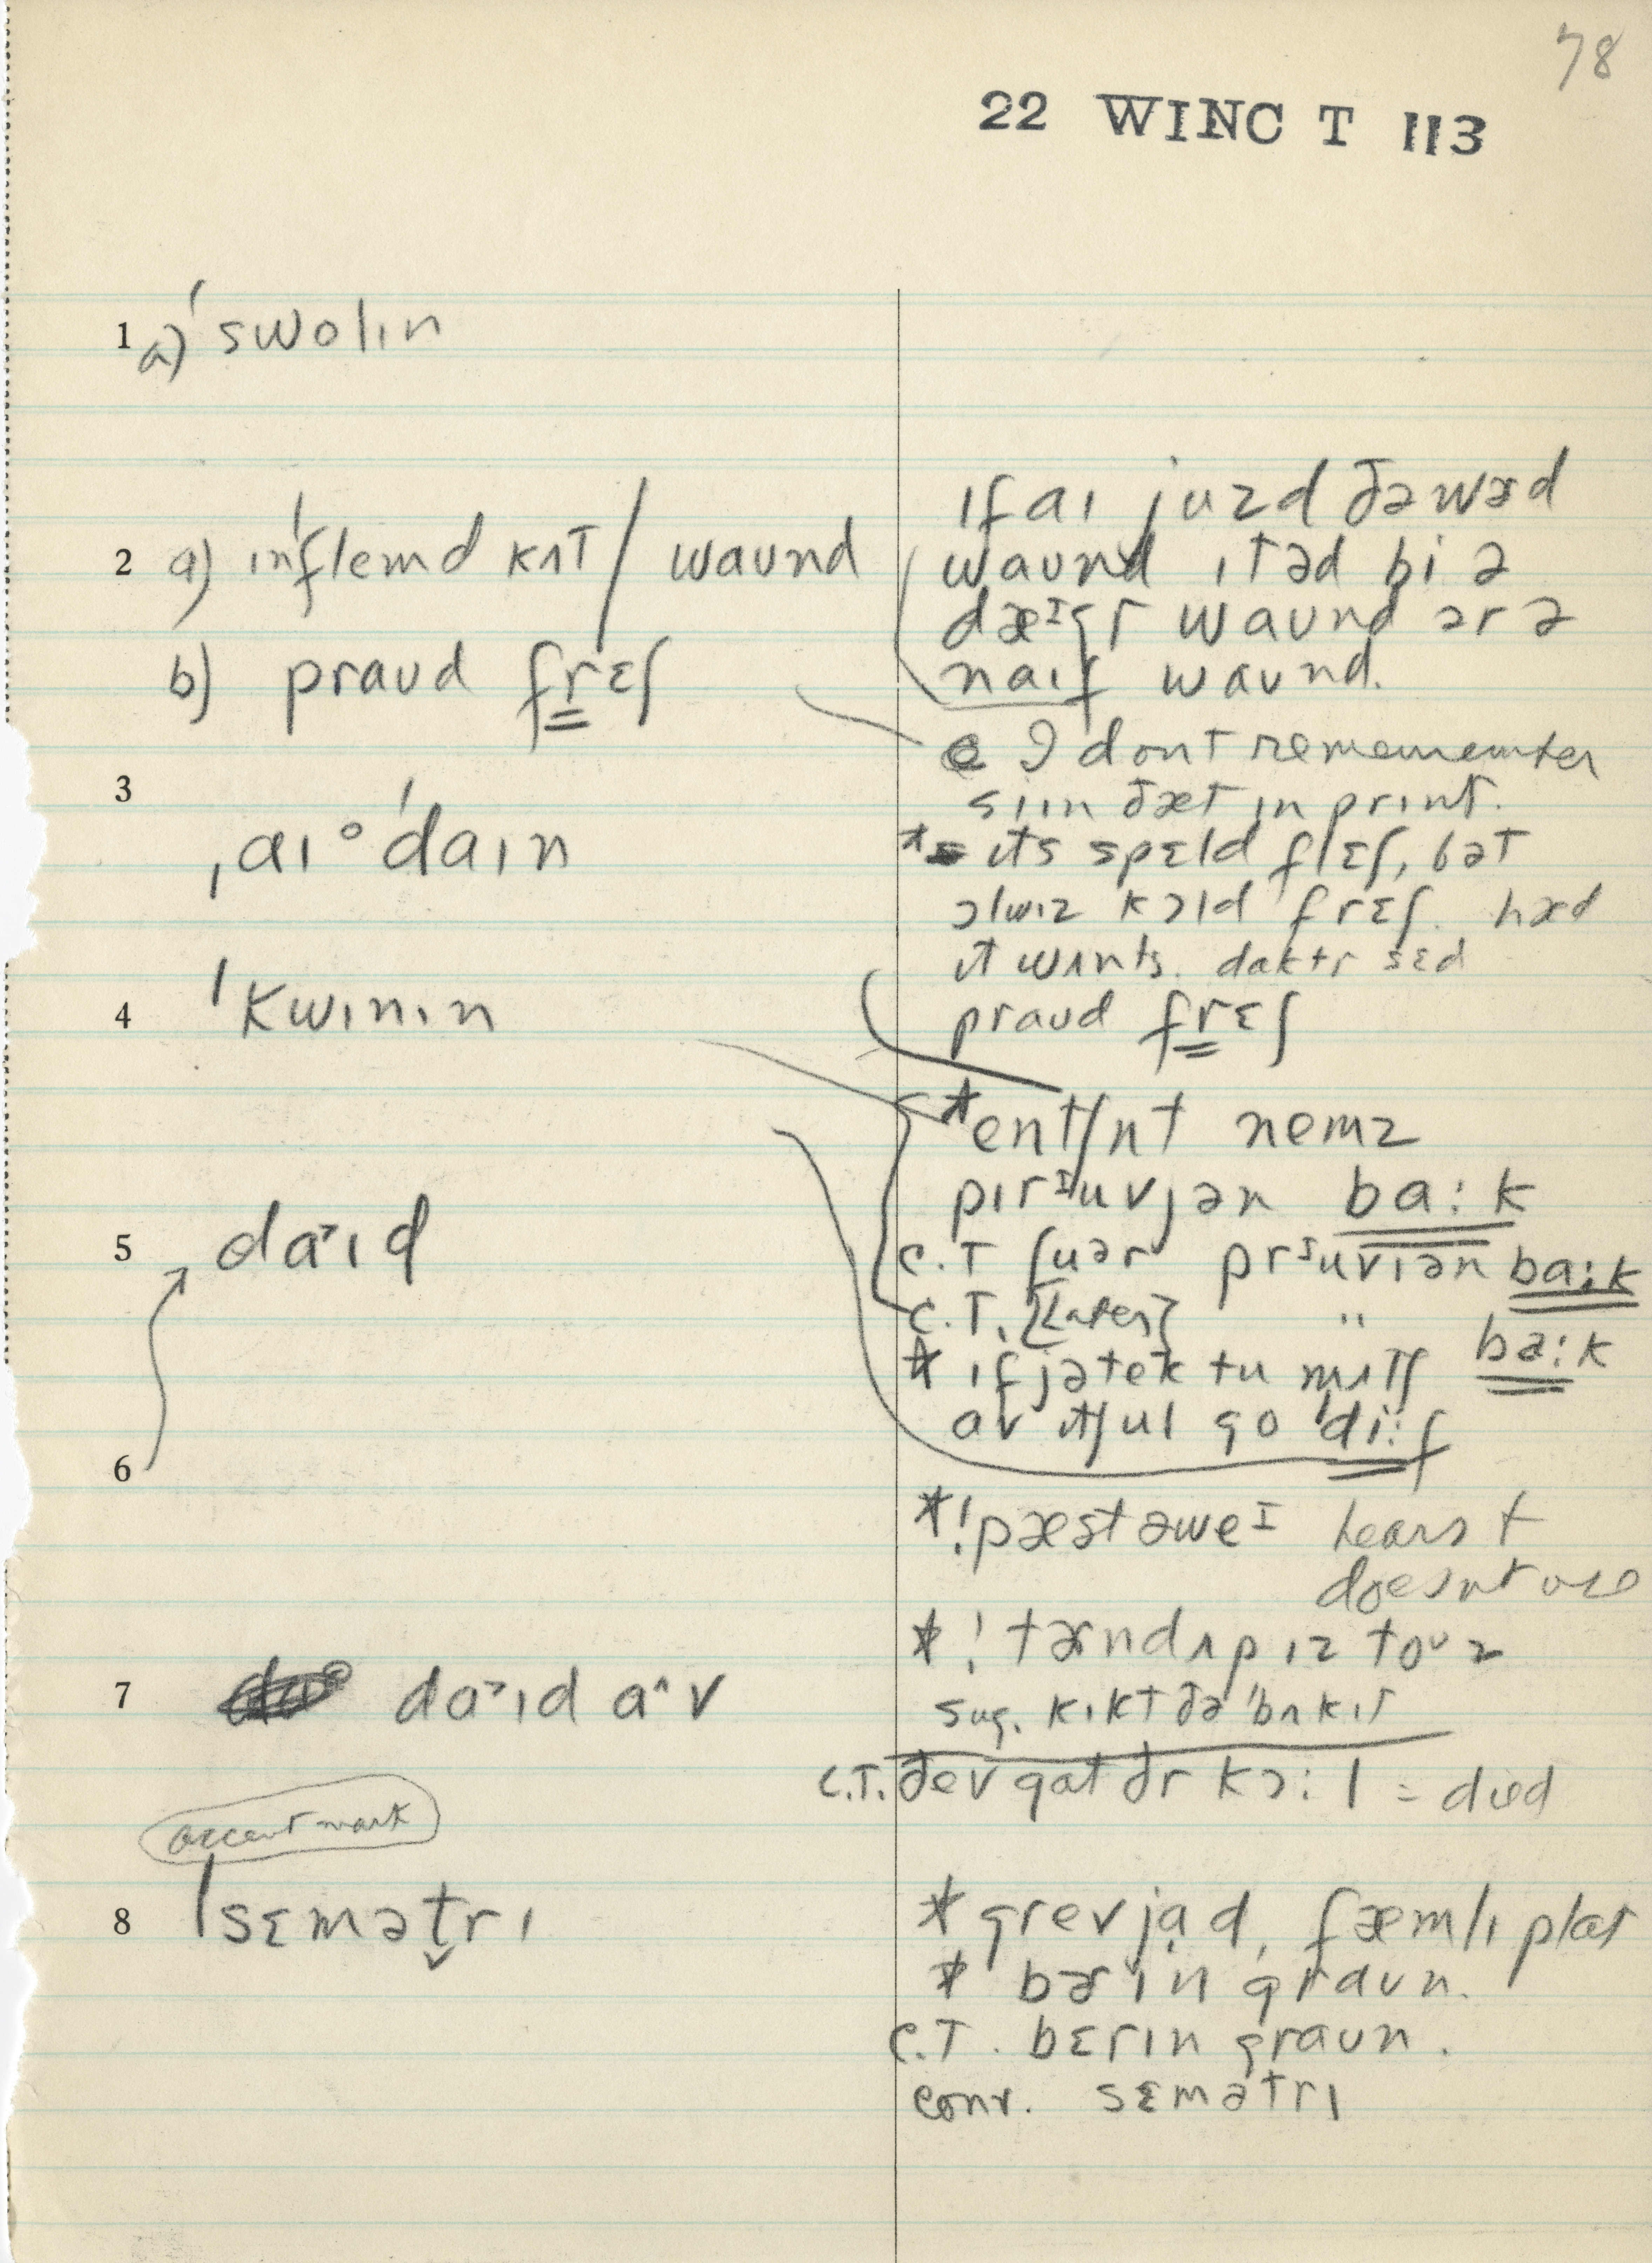 78
22 WINC T 113
1 a) ˈswolɪn
2 a) ɪnˈflemd kʌt / waund
b) praud frɛʃ
3 ˌaɪoˈdaɪn
4 ˈkwɪnɪn
5 da˃ɪd
6
7 da˃ɪd a^v
accent mark
8 ˈsɛmət̬rɪ
ɪf aɪ juzd ðəwɚd
waund ɪtəd bi ə
waund ər ə
naɪf waund.
I dont rememember
siɪn ðæt ɪn prɪnt.
* ɪts spɛld flɛʃ, bət
ɔlwɪz kɔld frɛʃ. hæd
ɪt wʌnts. daktr sɛd
praud frɛʃ
*entʃnt nemz
pɪrɪuvjən ba:k
C.T ʃuər prɪuvɪən ba:k
C.T. [Later] " ba:k
* ɪf jətek tu mʌtʃ
av ɪtʃul go ˈdi:f
*! pæst əweɪ hears +
doesnt use
*! tɚnd ʌp ɪz toʊz
sug. kɪkt ðə ˈbʌkɪt
C.T. ðev gat ðr kɔ:l = died
* grevjad, fæmlɪ plat
* bɚɪn graun.
C.T. bɛrɪn graun.
conv. sɛmətrɪ